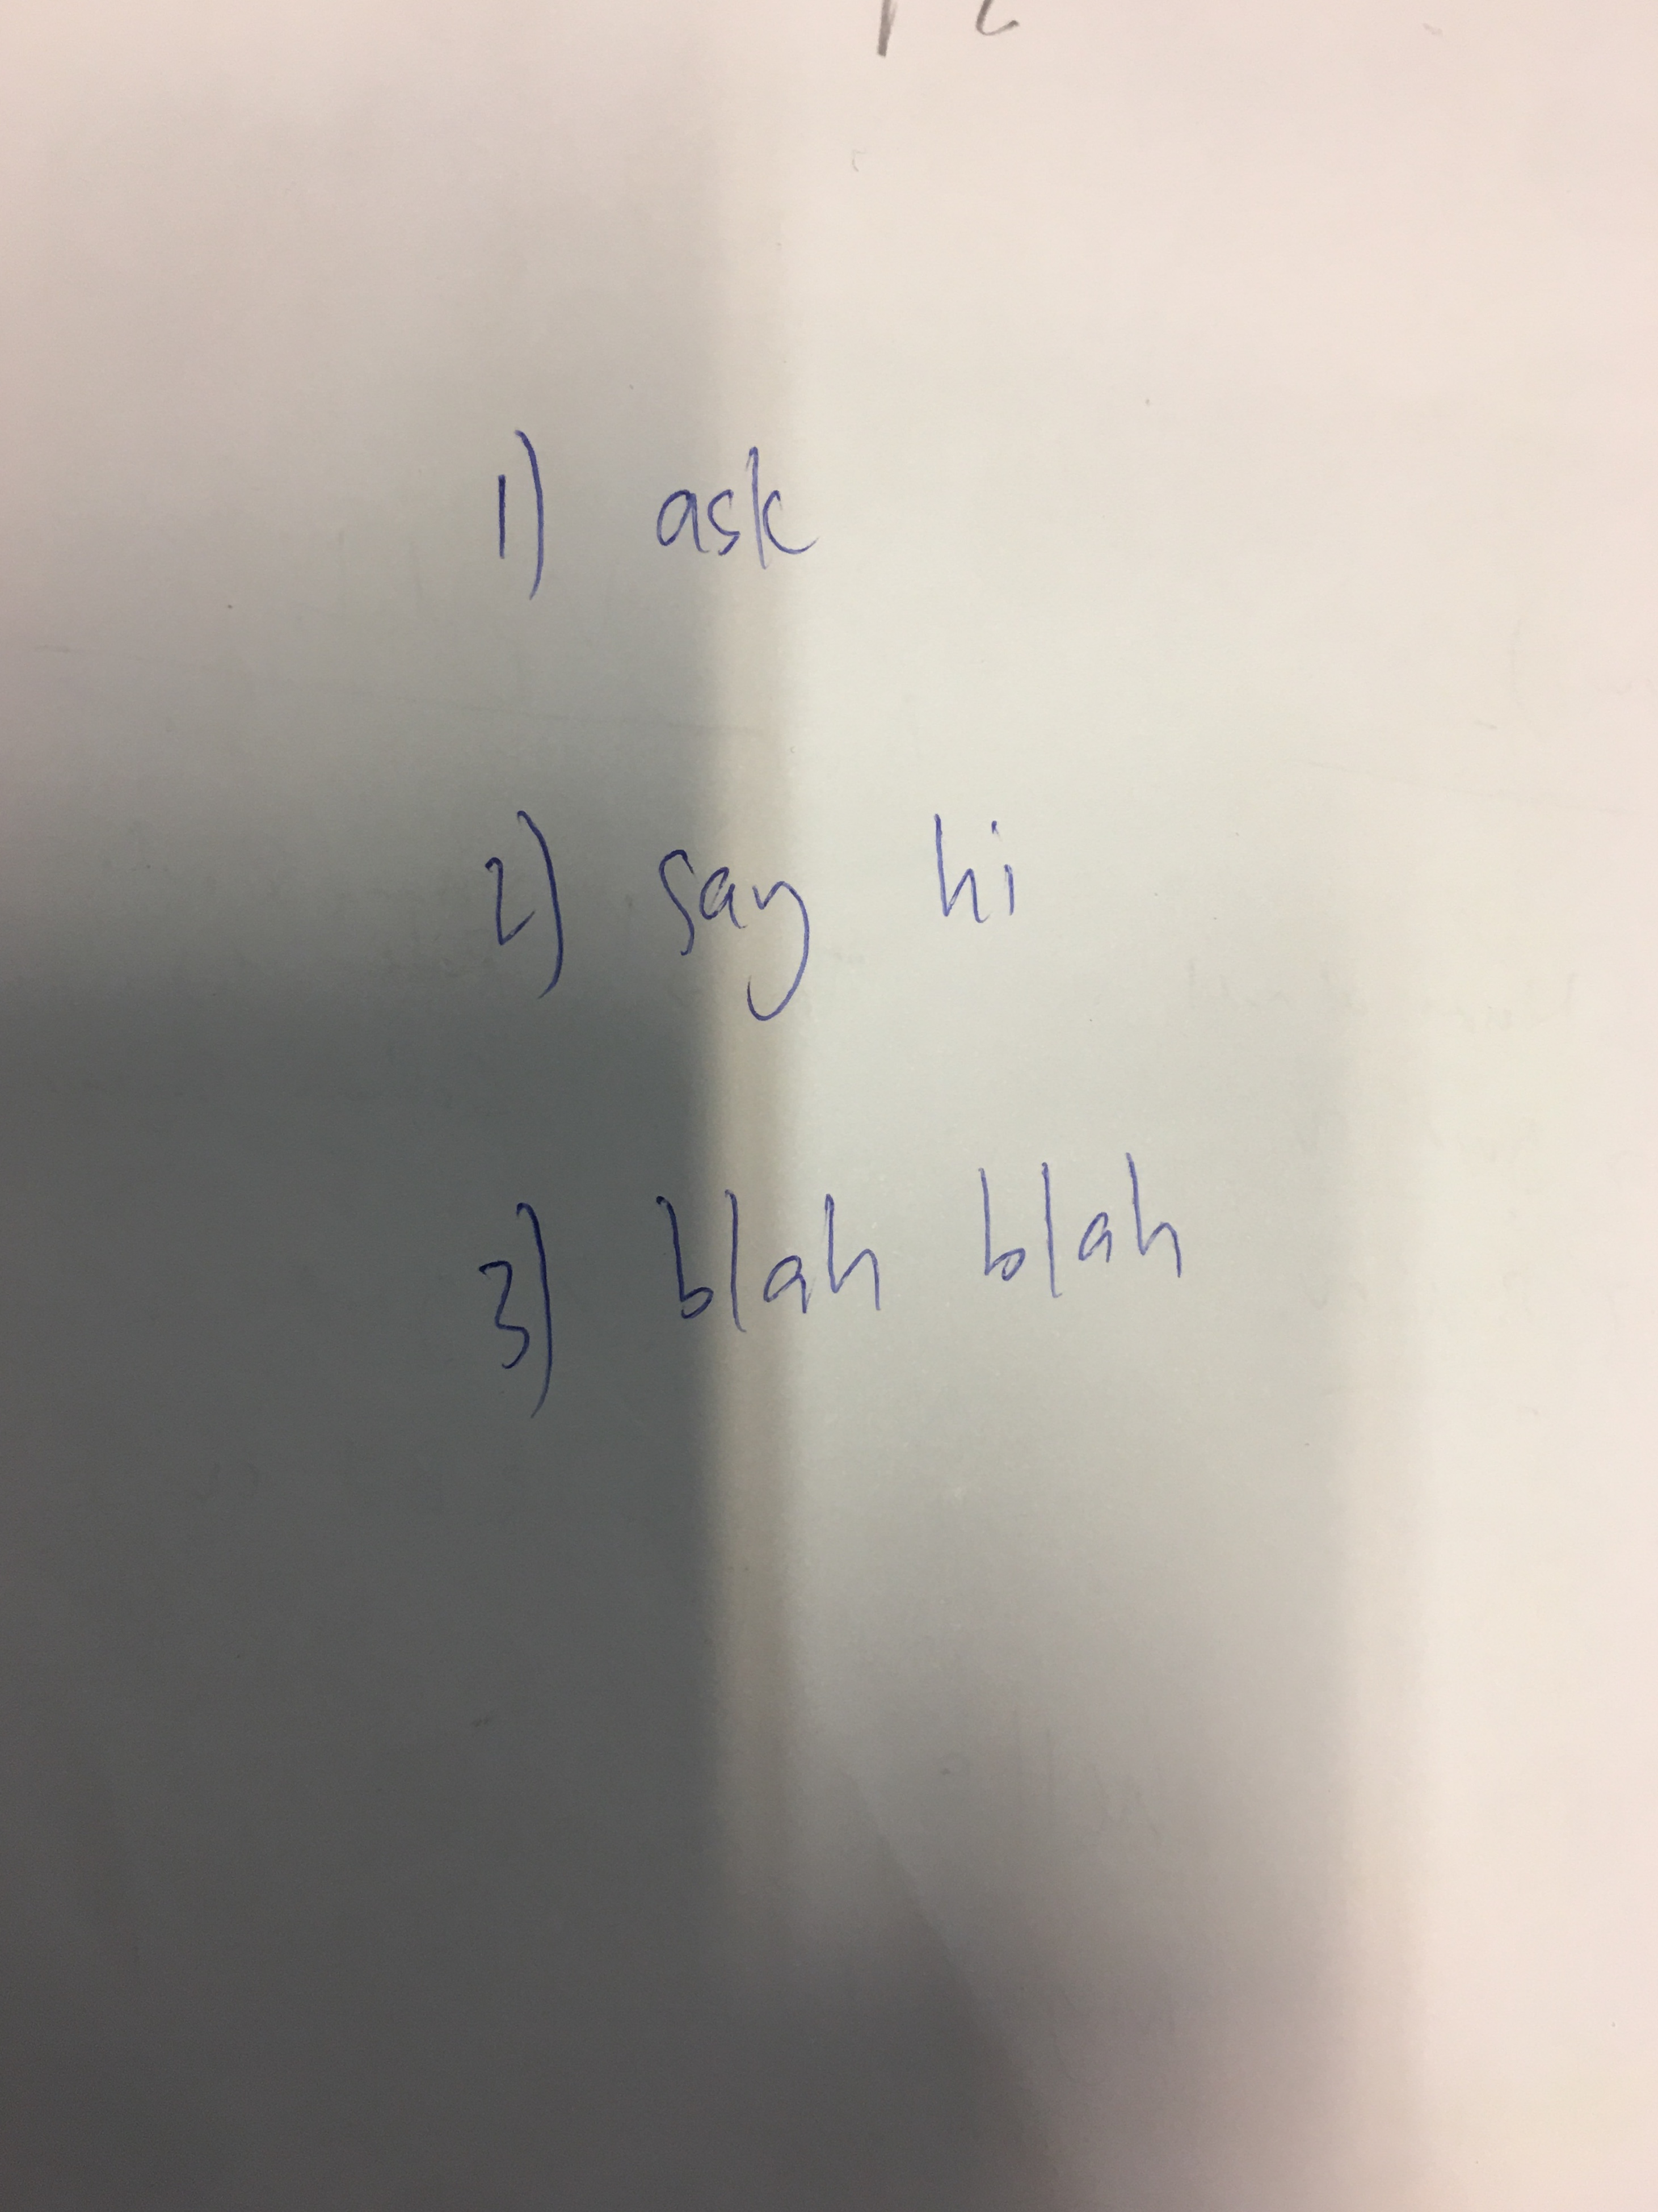 1) ask
2) say hi
3) blah blah